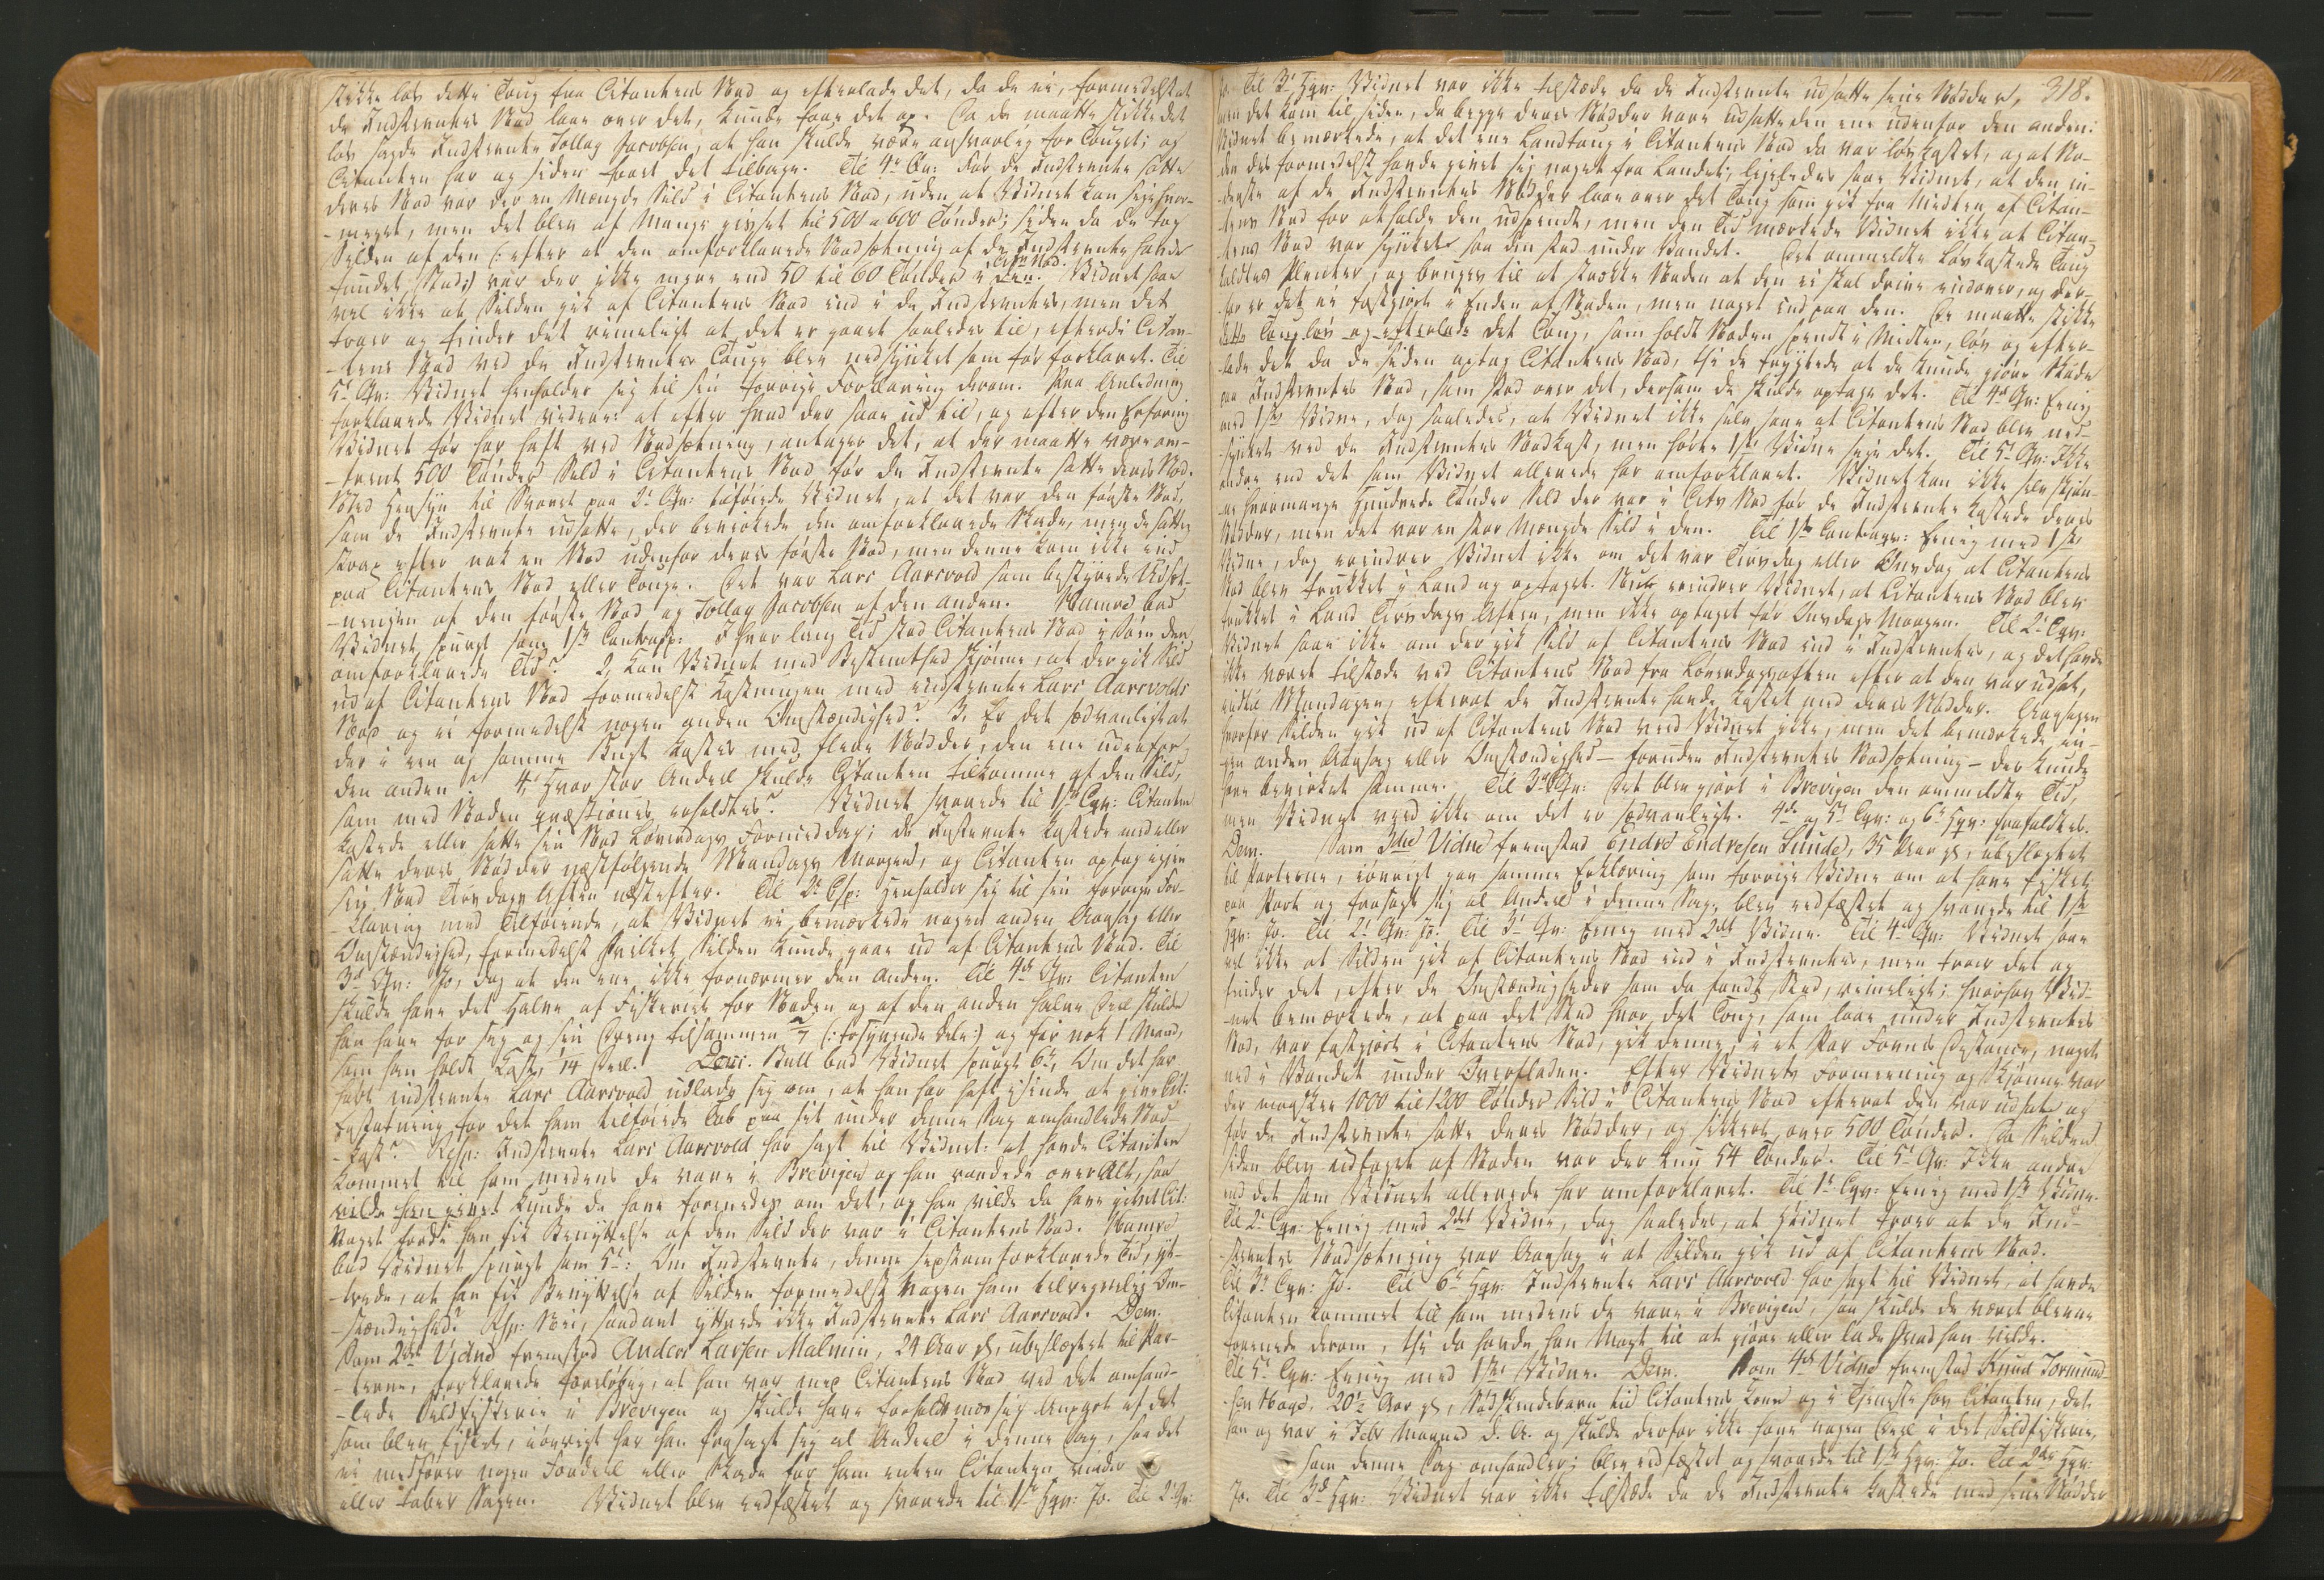 stikke løs dette Toug fra Citantens Nod og efterlade det, da de ei, formedelst at
de Indstevntes Nod laae over det, kunde faae det op. Da de maatte stikke det
løs sagde Indstevnte Tollag Jacobsen, at han skulde være ansvarlig for Touget; og
Citanten har og siden faaet det tilbage. Til 4de Qv: Før de Indstevnte satte
deres Nod var der en Mængde Sild i Citantens Nod, uden at Vidnet kan sige hvor-
-meget, men det blev af Mange gisset til 500 a 600 Tønder; siden da de tog
Silden af den (: efter at den omforklarede Nodsætning af de Indstevnte havde
fundet Sted:) var der ikke mere end 50 til 60 Tønder i Citns Nod. Vidnet saae
vel ikke at Silden gik af Citantens Nod ind i de Indstevntes, men det
troer og finder det rimeligt at det er gaaet saaledes til, efterdi Citan-
-tens Nod ved de Indstevntes Touge blev nedsynket som før forklaret. Til
5te Qv: Vidnet henholder sig til sin forrige Forklaring derom. Paa Anledning
forklarede Vidnet videre at efter hvad der saae ud til, og efter den Erfaring
Vidnet før har haft ved Nodsætning, antager det, at der maatte være om-
-trent 500 Tønder Sild i Citantens Nod før de Indstevnte satte deres Nod.
Med Hensyn til Svaret paa 2det Qv: tilføiede Vidnet, at det var den første Nod,
som de Indstevnte udsatte, der bevirkede den omforklarede Skade, men de satte
strax efter nok en Nod udenfor deres første Nod, men denne kom ikke ind
paa Citantens Nod eller Touge. Det var Lars Aarsvold som bestyrede Udsæt-
-ningen af den første Nod og Tollag Jacobsen af den anden. Vamre bad
Vidnet spurgt som 1ste Contrasp: I hvor lang Tid stod Citantens Nod i Søen den
omforklarede Tid? 2, Kan Vidnet med Bestemthed skjønne, at der gik Sild
ud af Citantens Nod formedelst Kastningen med indstevnte Lars Aarsvolds
Nod og ei formedelst nogen anden Omstændighed? 3. Er det sædvanligt at
der i een og samme Bugt kastes med flere Nodder, den ene udenfor
den anden? 4, Hvor stor Andeel skulde Citanten tilkomme af den Sild,
som med Noden qvæstionis erholdtes? Vidnet svarede til 1ste Cqv: Citanten
kastede eller satte sin Nod Løverdags Formiddag; de Indstevnte kastede ned eller
satte deres Nodder næstfølgende Mandags Morgen, og Citanten optog igjen
sin Nod Tirsdags Aften næstefter. Til 2det Csp: Henholder sig til sin forrige For-
-klaring med Tilføiende, at Vidnet ei bemærkede nogen anden Aarsag eller
Omstændighed, formedelst hvilken Silden kunde gaae ud af Citantens Nod. Til
3die Qv: Jo, dog at den ene ikke fornærmer den anden. Til 4de Qv: Citanten
skulde have det Halve af Fiskeriet for Noden og af den anden halve Deel skulde
han have for sig og sin Dreng tilsammen 2/7 (: tosyvende Dele:) og for nok 1 Mand,
som han holdt Kost, 1/14 Deel. Dem. Bull bad Vidnet spurgt 6te, Om det har
hørt indstevnte Lars Aarsvold udlade sig om, at han har haft isinde at give Cit:
Erstatning for det ham tilføiede Tab paa sit under denne Sag omhandlede Nod
-kast? Resp: Indstevnte Lars Aarsvold har sagt til Vidnet: at havde Citanten
kommet til ham medens de vare i Brevigen og han raadede over Alt, saa
vilde han givet kunde de have forenedes om det, og han vilde da have givet Cit:
Noget fordi han fik Benyttelse af den Sild der var i Citantens Nod. Vamre
bad Vidnet spurgt som 5te: Om Indstevnte, denne sidstomforklarede Tid, yt-
-trede, at han fik Benyttelse af Silden formedelst Nogen ham tilregnelig Om-
-stændighed? Rsp: Nei, saadant yttrede ikke Indstevnte Lars Aarsvold. Dem.
Som 2det Vidne fremstod Anders Larsen Malmin, 24 Aar gl, ubeslægtet til Par-
-terne, forklarede foreløbig, at han var med Citantens Nod ved det omhand-
-lede Sildfiskerie i Brevigen og skulde have forholdsmæssig Anpart af det
som blev fisket, iøvrigt har han frasagt sig al Andeel i denne Sag, saa det
ei medfører nogen Fordeel eller Skade for ham enten Citanten vinder
eller taber Sagen. Vidnet blev eedfæstet og svarede til 1ste Hqv: Jo. Til 2de Qv:
318.
Jo. Til 3de Hqv: Vidnet var ikke tilstæde da de Indstevnte udsatte sine Nodder,
men det kom til siden, da begge deres Nodder vare udsatte den ene udenfor den anden.
Vidnet bemærkede, at det ene Landtoug i Citantens Nod da var løskastet, og at No-
den desformedelst havde givet sig noget fra Landet; ligeledes saae Vidnet, at den in-
derste af de Indstevntes Nodder laae over det Toug som gik fra Midten af Citan-
tens Nod for at holde den udspændt, men den Tid mærkede Vidnet ikke at Citan-
tens Nod var synket saa den stod under Vandet. Det ommeldte løskastede Toug
kaldtes Plenter, og bruges til at strække Noden at den ei skal drive indover, og der-
for er det ei fastgjort i Enden af Noden, men noget ind paa den. De maatte stikke
dette Toug løs og efterlade det Toug, som holdt Noden spendt i Midten, løs og efter-
lade det da de siden optog Citantens Nod, thi de frygtede at de kunde gjøre Skade
paa Indstevntes Nod, som stod over det, dersom de skulde optage det. Til 4de Qv: Eenig
med 1ste Vidne, dog saaledes, at Vidnet ikke selv saae at Citantens Nod blev ned-
synket ved de Indstevntes Nodkast, men hørte 1ste Vidne sige det. Til 5te Qv: Ikke
andre end det som Vidnet allerede har omforklaret. Vidnet kan ikke selv skjøn-
ne hvormange Hundrede Tønder Sild der var i Cits Nod før de Indstevnte kastede deres
Nodder, men det var en stor Mængde Sild i den. Til 1ste Contraqv: Eenig med 1ste
Vidne, dog erindrer Vidnet ikke om det var Tirsdag eller Onsdag at Citantens
Nod blev trukket i Land og optaget. Nu erindrer Vidnet, at Citantens Nod blev
trukket i Land Tirsdags Aften, men ikke optaget før Onsdags Morgen. Til 2de Cqv:
Vidnet saae ikke om der gik Sild af Citantens Nod ind i Indstevntes, og det havde
ikke været tilstæde ved Citantens Nod fra Løverdagsaften efter at den var udsat,
indtil Mandagen, efterat de Indstevnte havde kastet med deres Nodder. Aarsagen
hvorfor Silden gik ud af Citantens Nod veed Vidnet ikke, men det bemærkede in-
gen anden Aarsag eller Omstændighed – foruden Indstevntes Nodsætning – der kunde
have bevirket samme. Til 3de Qv: Det blev gjort i Brevigen den ommeldte Tid,
men Vidnet veed ikke om det er sædvanligt. 4de og 5te Cqv: og 6te Hqv: frafaldtes.
Dem. Som 3die Vidne fremstod Endre Endresen Lunde, 35 Aar gl, ubeslægtet
til Parterne, iøvrigt gav samme Erklæring som forrige Vidne om at have fisket
paa Part og frasagt sig al Andeel i denne Sag, blev eedfæstet og svarede til 1ste
Hqv: Jo. Til 2det Qv: Jo. Til 3de Qv: Eenig med 2det Vidne. Til 4de Qv: Vidnet saae
vel ikke at Silden gik af Citantens Nod ind i Indstevntes, men troer det og
finder det, efter de Omstændigheder som da fandt Sted, rimeligt; hvorhos Vid-
-net bemærkede, at paa det Sted hvor det Toug, som laae under Indstevntes
Nod, var fastgjort i Citantens Nod, gik denne, i et Par Favnes Distance, noget
ned i Vandet under Overfladen. Efter Vidnets Formeening og Skjønne var
der maaskee 1000 til 1200 Tønder Sild i Citantens Nod efterat den var udsat og
før de Indstevnte satte deres Nodder, og sikkert over 500 Tønder. Da Silden
siden blev udtaget af Noden var der kun 54 Tønder. Til 5te Qv: Ikke andre
end det som Vidnet allerede har omforklaret. Til 1ste Cqv: Eenig med 1ste Vidne.
Til 2de Cqv: Eenig med 2det Vidne, dog saaledes, at Vidnet troer at de Ind-
-stevntes Nodsætning var Aarsag i at Silden gik ud af Citantens Nod.
Til 3de Cqv: Jo. Til 6te Hqv: Indstevnte Lars Aarsvold har sagt til Vidnet, at havde
Citanten kommet til ham medens de vare i Brevigen, saa skulde de været blevne
forenede derom, thi da havde han Magt til at gjøre eller lade hvad han vilde.
Til 5te Cqv: Eenig med 1ste Vidne. Dem. Som 4de Vidne fremstod Knud Tormund-
-sen Hage, 20½ Aar gl, Sødskendebarn til Citantens Kone og i Tjeneste hos Citanten, det
han og var i Febr Maaned d. A. og skulde derfor ikke have nogen Deel i det Sildfiskerie,
som denne Sag omhandler; blev eedfæstet og svarede til 1ste Hqv: Jo. Til 2de Hqv:
Jo. Til 3de Hqv: Vidnet var ikke tilstæde da de Indstevnte kastede med sine Nodder